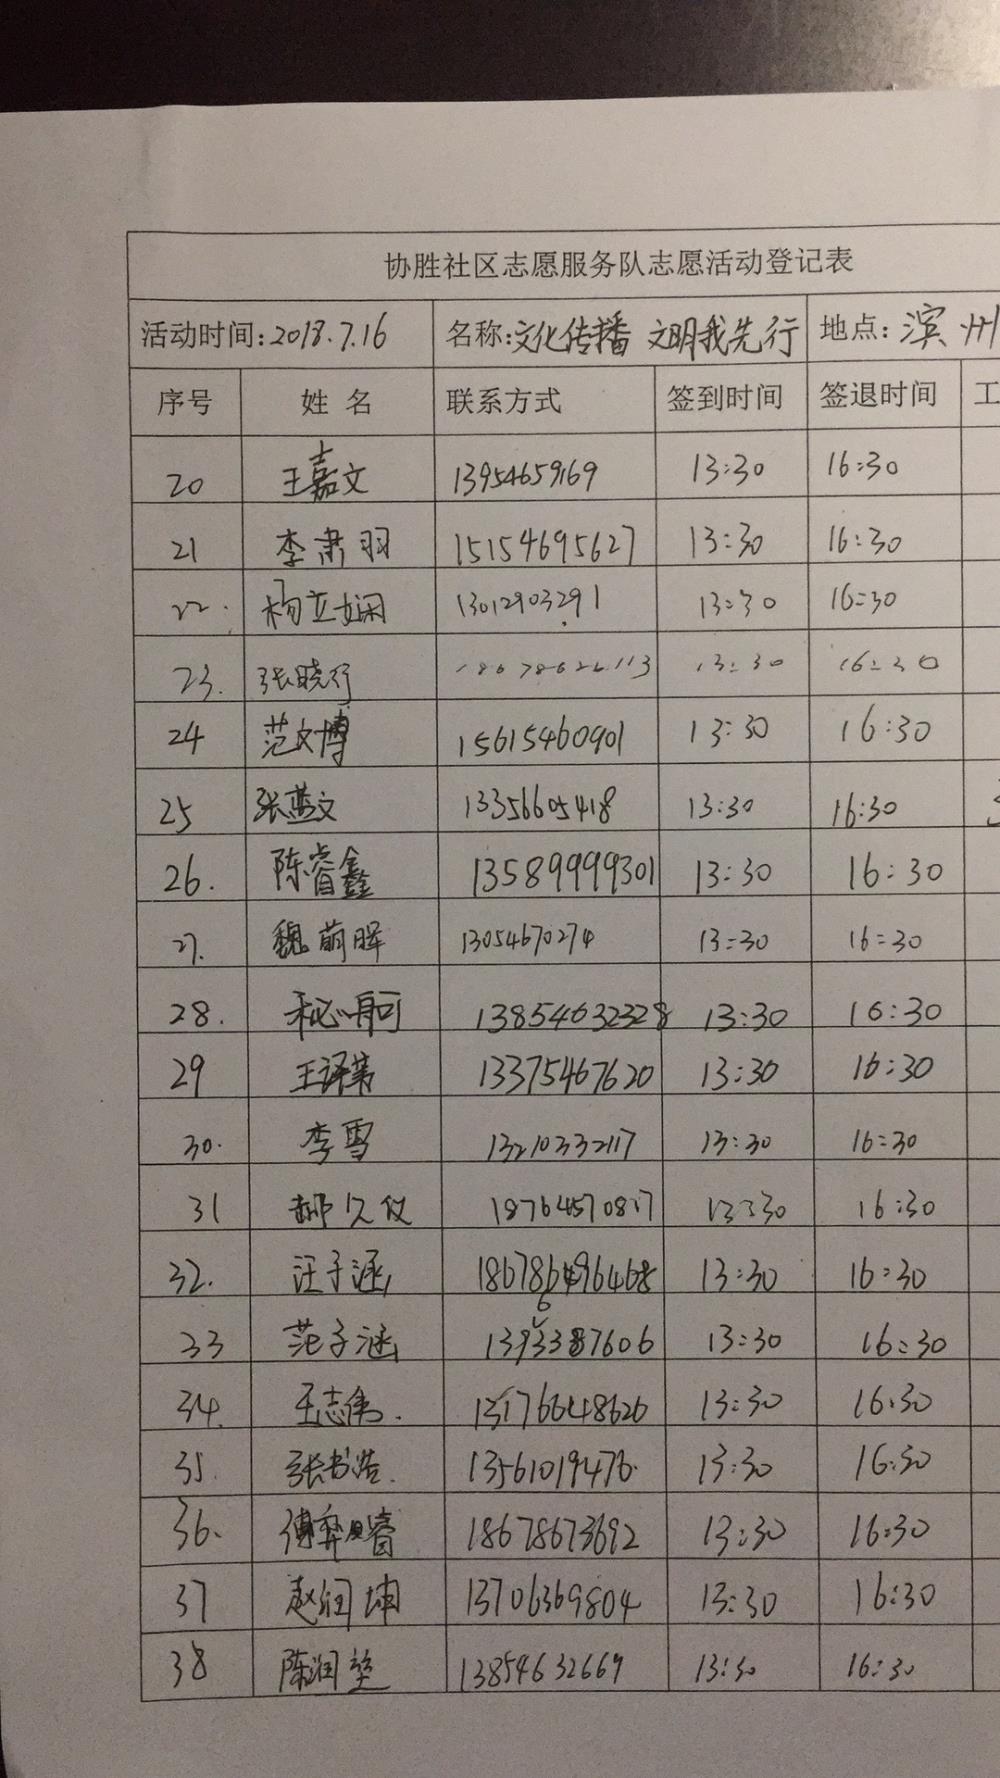 协胜社区志愿服务队志愿活动登记表
活动时间:2018.7.16 名称:文化传播 文明我先行 地点:滨州
序号 姓名 联系方式 签到时间 签退时间 工
20 王嘉文 13954659169 13:30 16:30
21 李肃羽 15154695627 13:30 16:30
22. 杨立娴 13012903291 13:30 16:30
23. 张晓行 18678626113 13:30 16:30
24 范文博 15615460901 13:30 16:30
25 张蓝文 13356605418 13:30 16:30
26. 陈睿鑫 13589999301 13:30 16:30
27. 魏萌晖 13054670274 13:30 16:30
28. 13854632328 13:30 16:30
29 王译苇 13375467620 13:30 16:30
30. 李雪 13210332117 13:30 16:30
31 郝久仪 18764570817 13:30 16:30
32. 汪子涵 13:30 16:30
33 范子涵 13:30 16:30
34. 王志伟. 13176648626 13:30 16:30
35. 张书浩. 13561019476. 13:30 16:30
36. 18678673692 13:30 16:30
37 赵润坤 13706369804 13:30 16:30
38 陈润堃 13854632669 13:30 16:30